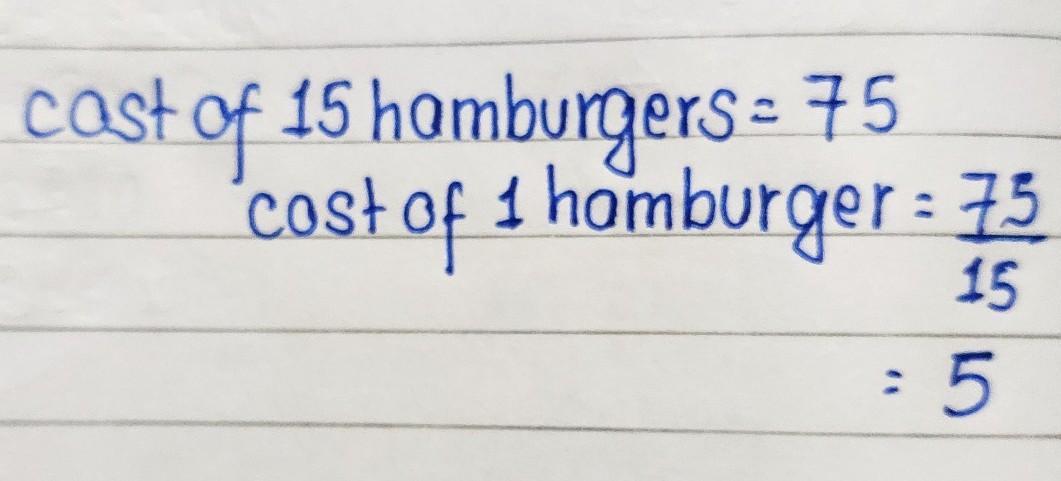 cost of 15 hamburgers = 75
cost of 1 hamburger = 75
15
= 5